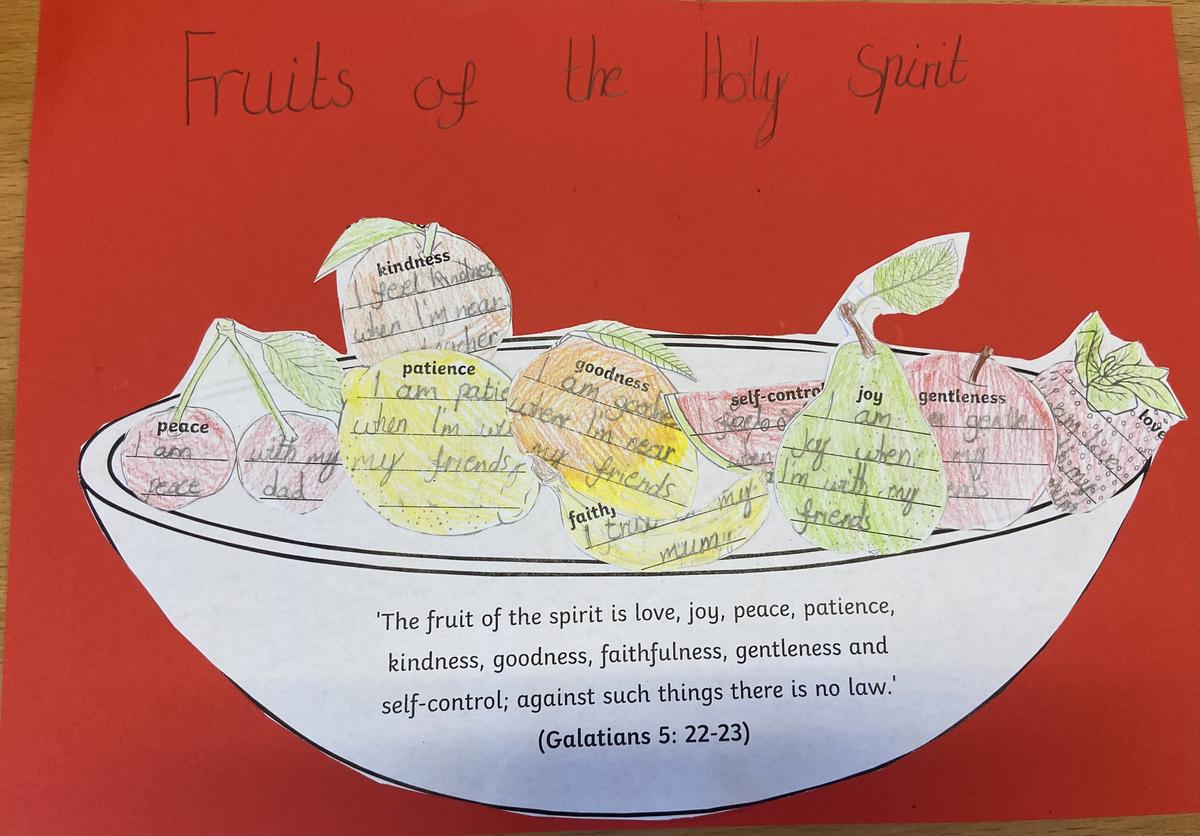 Fruits of the Holy Spirit
kindness
I feel kindness
when I'm near
teacher
peace
I am
peace
with my
dad
patience
I am patie
when I'm wi
my friends
goodness
I am goodne
when I'm near
my friends
faith
I trust my
mum
self-control
joy
I am
joy when
I'm with my
friends
gentleness
gentle
my
love
I am love
my
'The fruit of the spirit is love, joy, peace, patience,
kindness, goodness, faithfulness, gentleness and
self-control; against such things there is no law.'
(Galatians 5: 22-23)